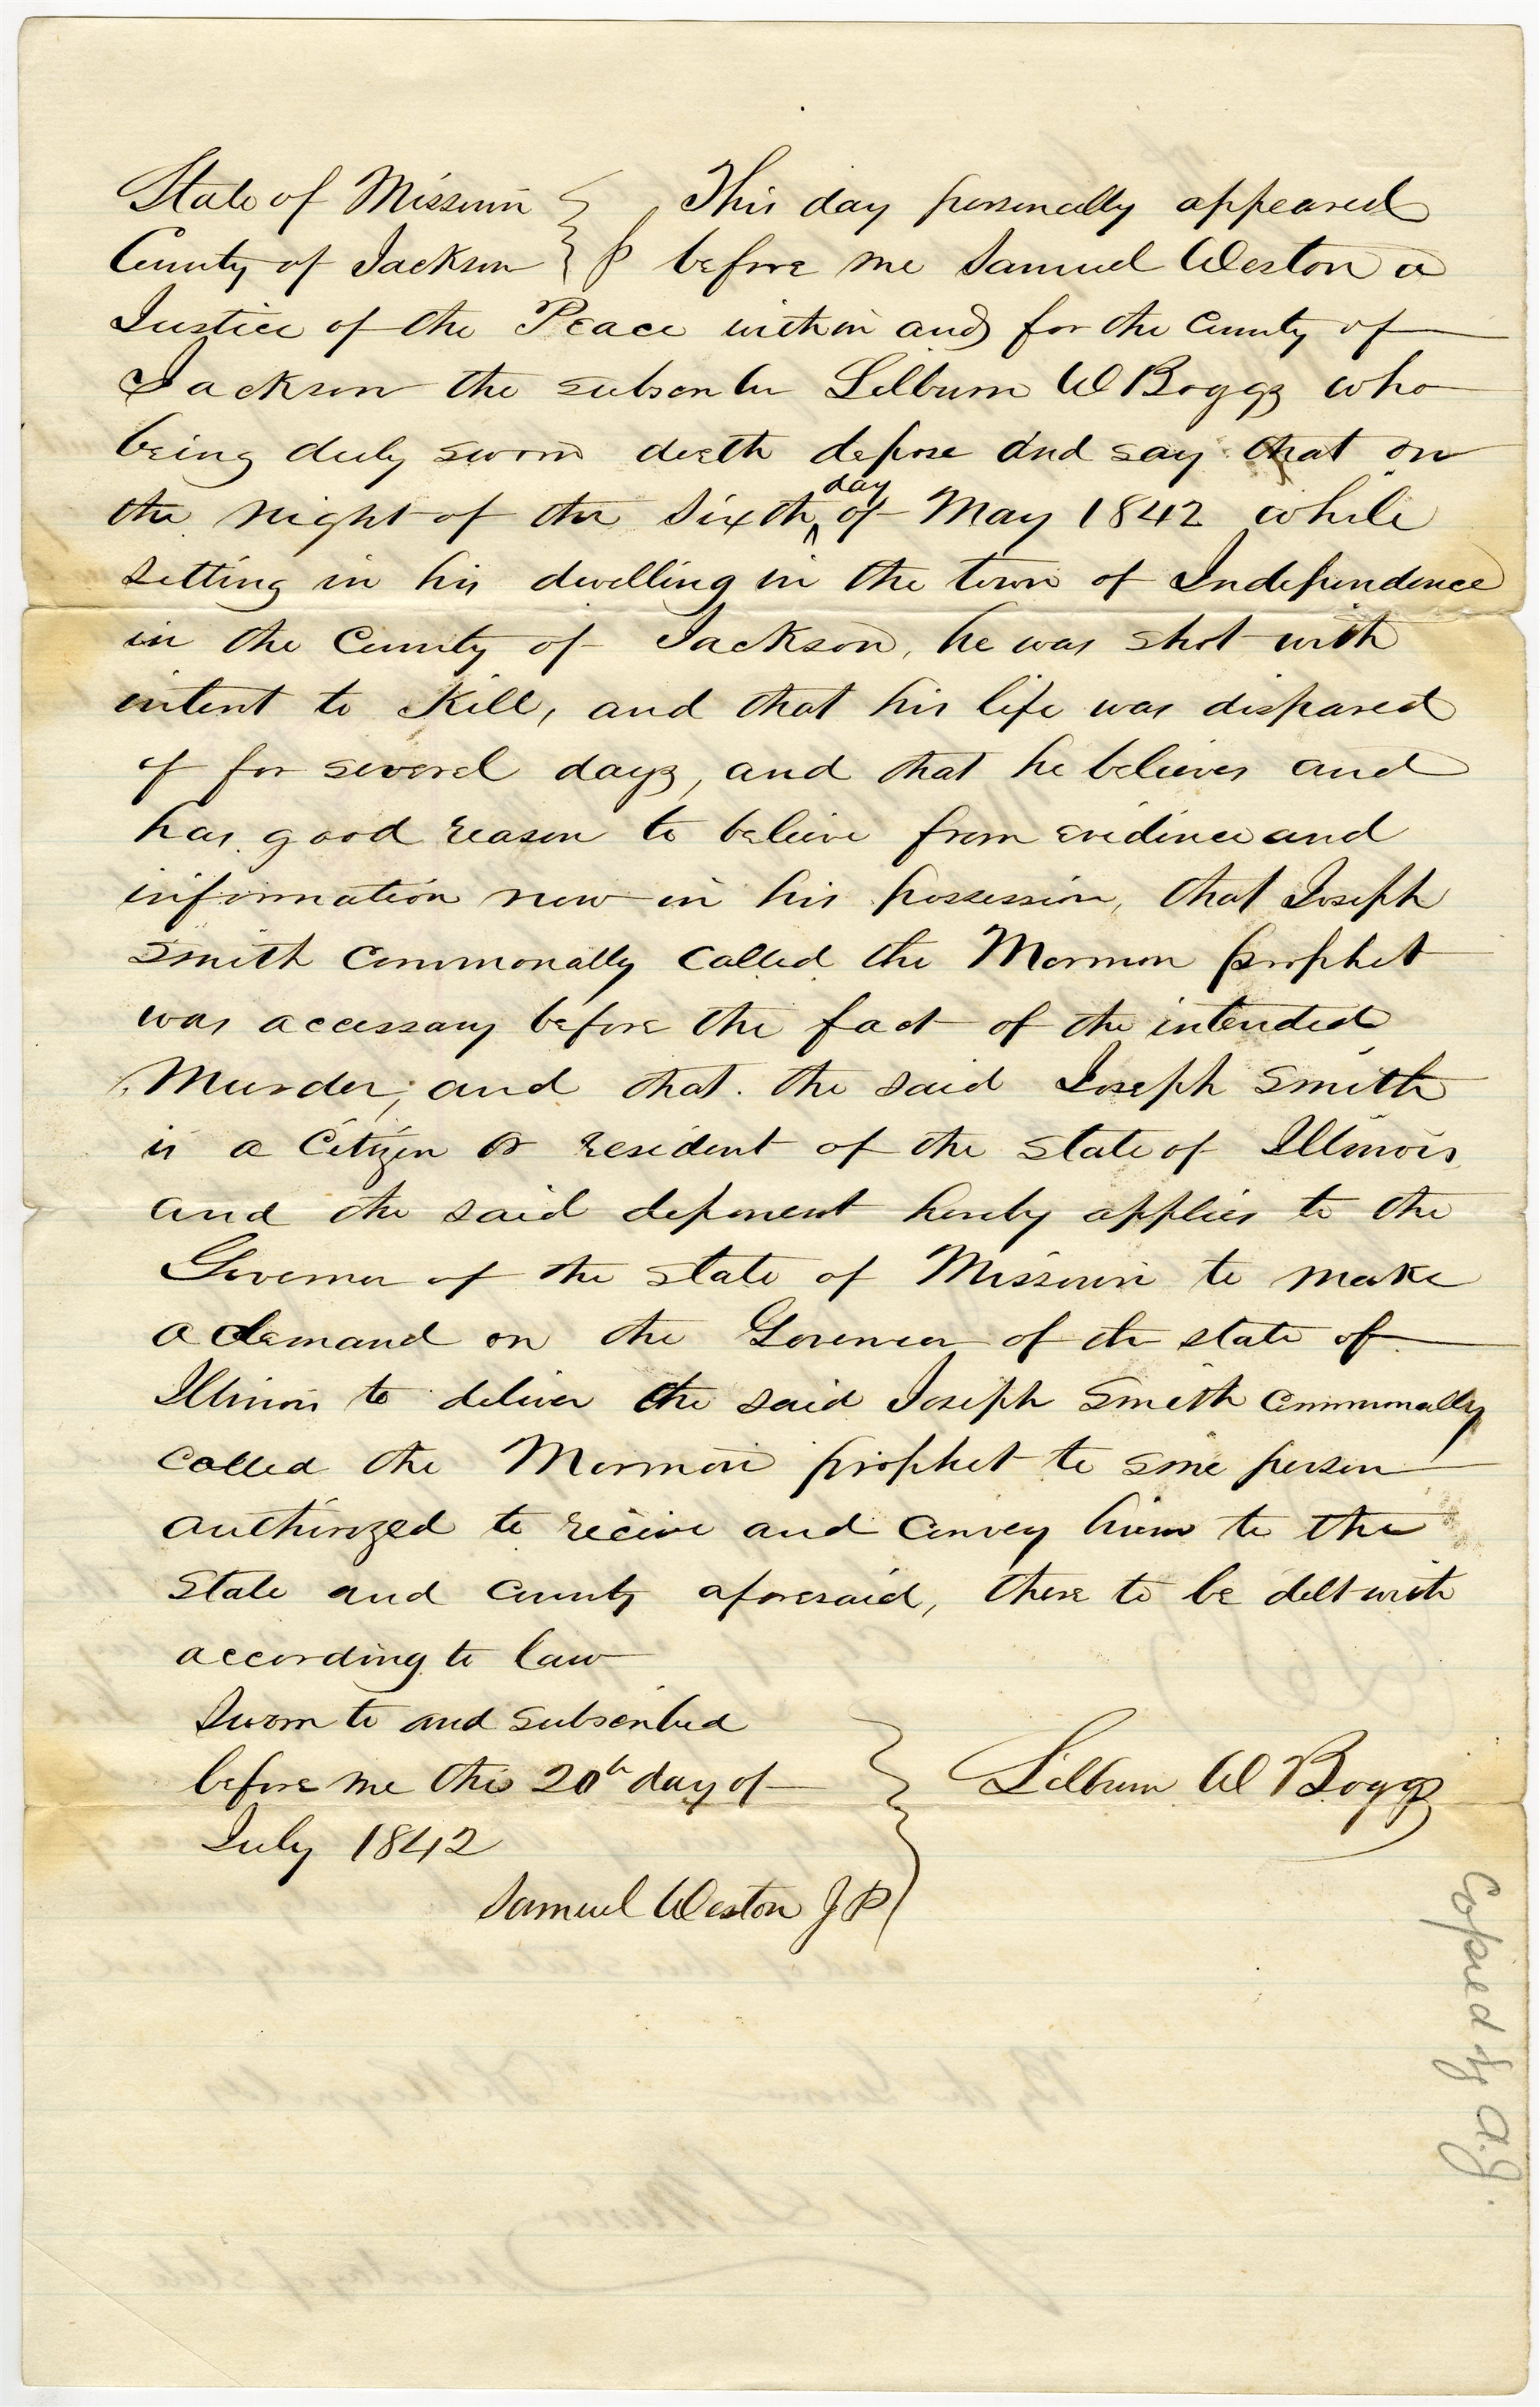 State of Missouri } This day personally appeared
County of Jackson } before me Samuel Weston a
Justice of the Peace within and for the County of
Jackson the subscriber Lilburn W Boggs who
being duly sworn doeth depose and say that on
the night of the sixth day of May 1842 while
setting in his dwelling in the town of Independence
in the County of Jackson, he was shot with
intent to Kill, and that his life was dispared
of for several days, and that he believes and
has good reason to believe from evidence and
information now in his possession, that Joseph
Smith commonally called the Mormon prophet
was accessary before the fact of the intended
Murder, and that the said Joseph Smith
is a Citizen or resident of the state of Illinois
and the said deponent hereby applies to the
Governor of the state of Missouri to make
a demand on the Governor of the state of
Illinois to deliver the said Joseph Smith commonally
called the Mormon prophet to some person
authorized to receive and convey him to the
State and county aforesaid, there to be delt with
according to law
Sworn to and subscribed
before me this 20h day of } Lilburn W Boggs
July 1842
Samuel Weston J P
Copied by A.J.